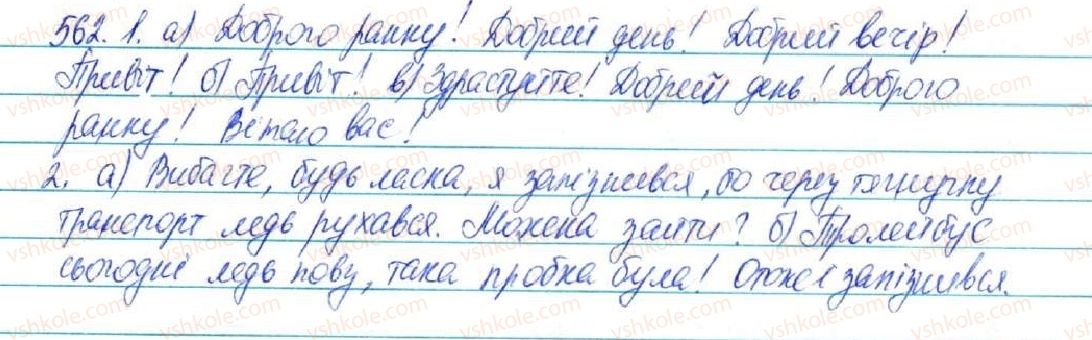 562. 1. а) Доброго ранку! Добрий день! Добрий вечір!
Привіт! б) Привіт! в) Здрастуйте! Добрий день! Доброго
ранку! Вітаю вас!
2. а) Вибачте, будь ласка, я запізнився, бо через тягнучку
транспорт ледь рухався. Можна зайти? б) Тролейбус
сьогодні ледь повз, така пробка була! Отже запізнився.